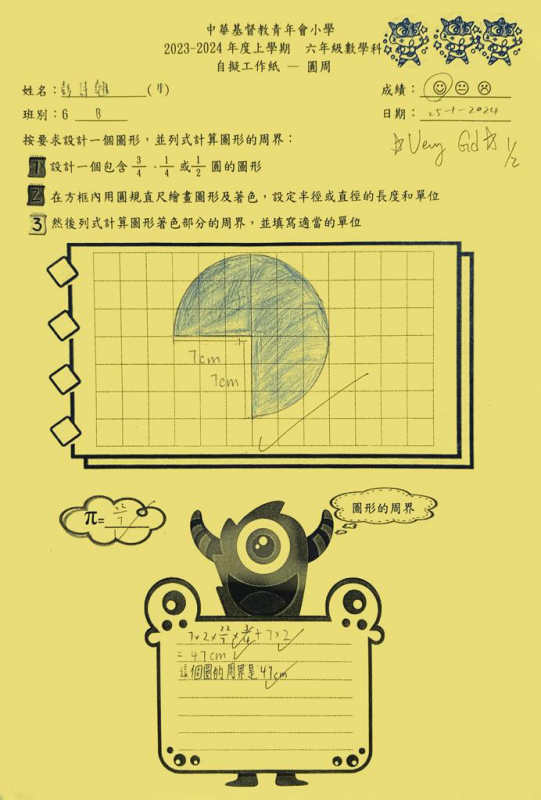 中華基督教青年會小學
2023-2024年度上學期　六年級數學科
自擬工作紙 — 圓周
姓名：
成績：
班別：6 B
日期：25-1-2024
☆Very Gd☆ 1/2
按要求設計一個圖形，並列式計算圖形的周界：
1 設計一個包含 3/4、1/4 或 1/2 圓的圖形
2 在方框內用圓規直尺繪畫圖形及著色，設定半徑或直徑的長度和單位
3 然後列式計算圖形著色部分的周界，並填寫適當的單位
7cm
7cm
π= 22/7
圖形的周界
7×2×22/7×3/4+7×2
= 47cm
這個圖的周界是47cm